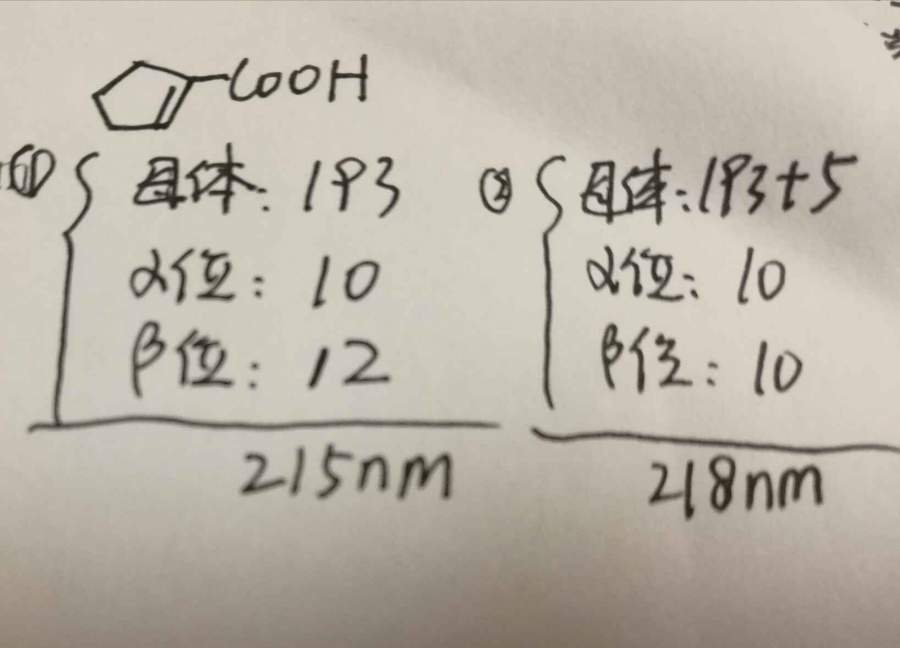 COOH
① 母体: 193
α位: 10
β位: 12
215nm
② 母体: 193+5
α位: 10
β位: 10
218nm